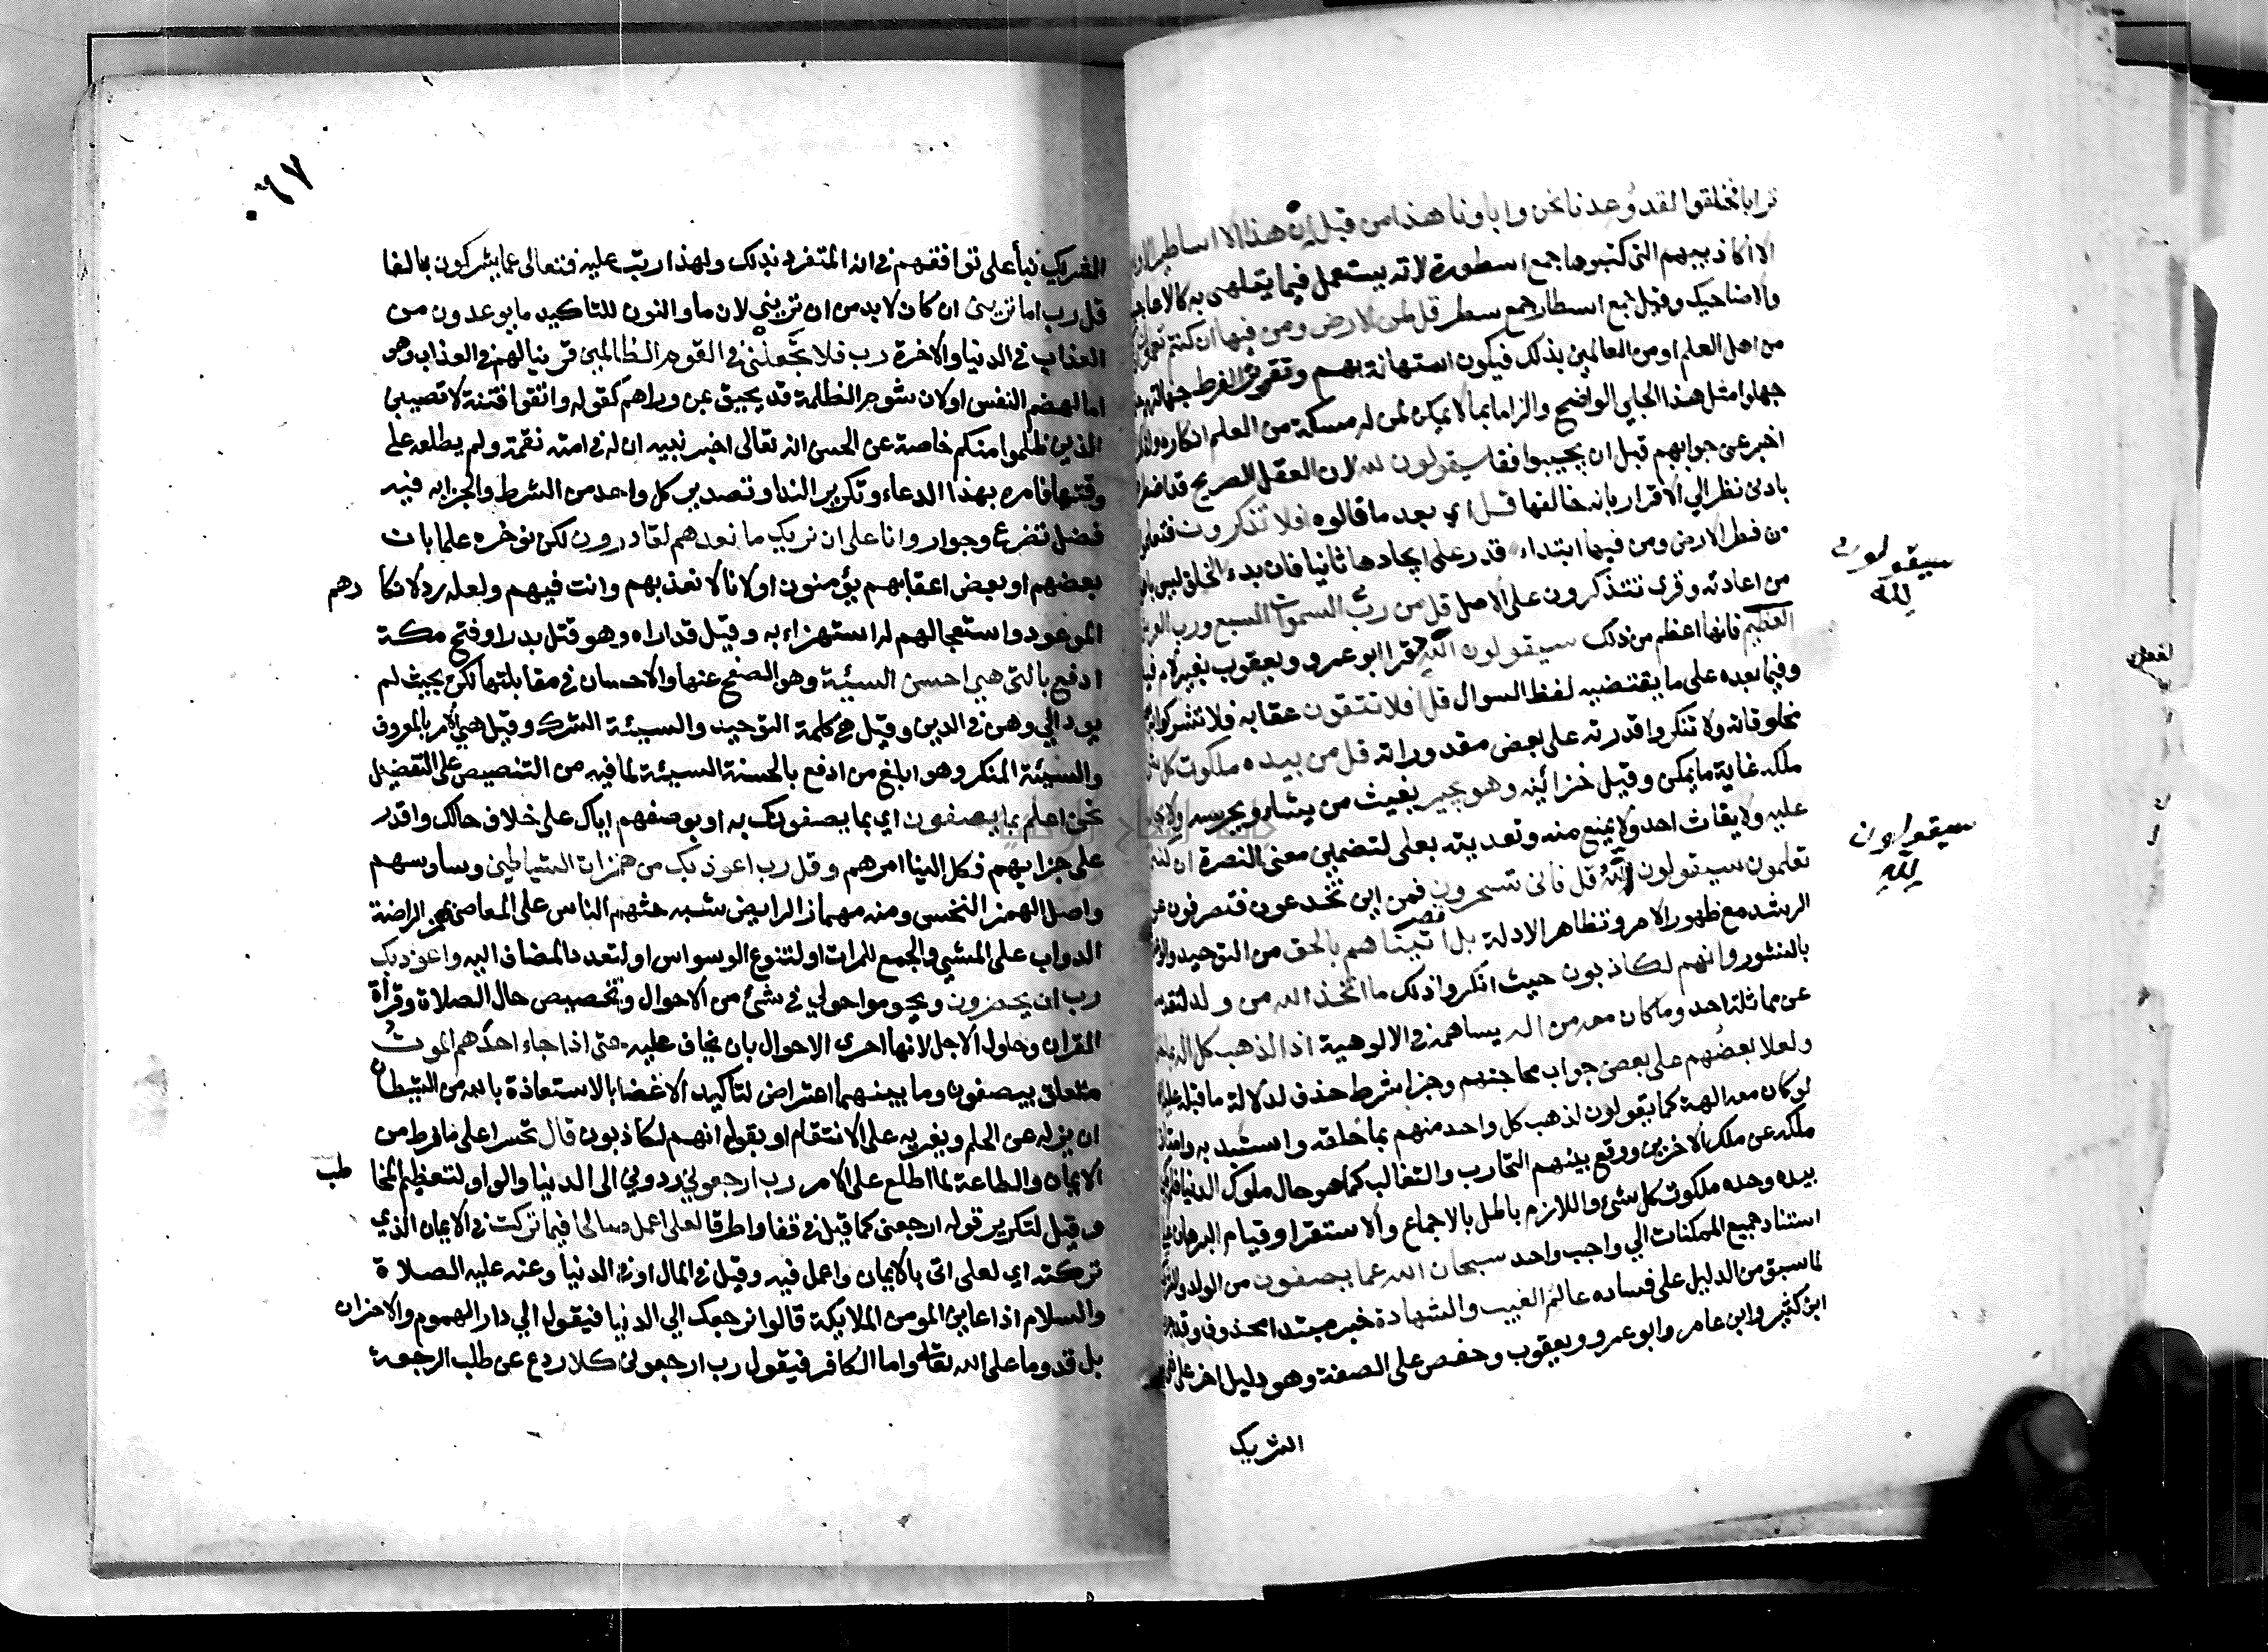 ترابا نخلقوا لقد وعدنا نحن واباونا هذا من قبل ان هذا الا اساطير
الا اكاذيبهم التى كتبوها جمع اسطورة لانه يستعمل فيما يتلهى به كالاعاجيب
والاضاحيك وقيل جمع اسطار جمع سطر قل لمن الارض ومن فيها ان كنتم تعلمون
من اهل العلم او من العالمين بذلك فيكون استهانة بهم وتقرير الفرط جهالتهم
جهلوا مثل هذا الجلي الواضح والزاما بما لا يمكن لمن له مسكة من العلم انكاره ولذلك
اخبر عن جوابهم قبل ان يجيبوا فقا سيقولون لله لان العقل الصريح قد اضطرهم
بادنى نظر الي الاقرار بانه خالقها قل اي بعد ما قالوه افلا تذكرون فتعلمون
من فطر الارض ومن فيها ابتداء قدر على ايجادها ثانيا فان بدء الخلق ليس باهون
من اعادته وقرى تتذكرون على الاصل قل من رب السموات السبع ورب العرش
العظيم فانها اعظم من ذلك سيقولون الله قرا ابو عمرو ويعقوب بغير لام فيه
وفيما بعده على ما يقتضيه لفظ السوال قل افلا تتقون عقابه فلا تشركوا به
مخلوقاته ولا تنكروا قدرته على بعض مقدوراته قل من بيده ملكوت كل شئ
ملكه غاية ما يمكن وقيل خزائنه وهو يجير يغيث من يشاء ويحرسه ولا يجار
عليه ولا يغاث احد ولا يمنع منه وتعديته بعلى لتضمين معنى النصرة ان كنتم
تعلمون سيقولون الله قل فانى تسحرون فمن اين تخدعون فتصرفون عن
الرشد مع ظهور الامر وتظاهر الادلة بل اتيناهم بالحق من التوحيد والوعد
بالنشور وانهم لكاذبون حيث انكروا ذلك ما اتخذ الله من ولد لتقدسه
عن مماثلة احد وما كان معه من اله يساهمه في الالوهية اذا لذهب كل اله بما خلق
ولعلا بعضهم على بعض جواب محاجتهم وجزا شرط حذف لدلالة ما قبله عليه
لو كان معه الهة كما يقولون لذهب كل واحد منهم بما خلقه واستبد به وامتاز
ملكه عن ملك الاخرين ووقع بينهم التحارب والتغالب كما هو حال ملوك الدنيا فلم يكن
بيده وحده ملكوت كل شئ واللازم باطل بالاجماع والاستقرا وقيام البرهان على
استناد جميع الممكنات الي واجب واحد سبحان الله عما يصفون من الولد والشريك
لما سبق من الدليل على فساده عالم الغيب والشهادة خبر مبتدا محذوف وقد جره
ابن كثير وابن عامر وابو عمرو ويعقوب وحفص على الصفة وهو دليل اخر على نفى
الشريك
سيقولون
لله
سيقولون
لله
٦٧
الشريك نبأ على توافقهم في انه المتفرد بذلك ولهذا رتب عليه فتعالى عما يشركون بالفا
قل رب اما ترينى ان كان لابد من ان ترينى لان ما والنون للتاكيد ما يوعدون من
العذاب في الدنيا والاخرة رب فلا تجعلنى في القوم الظالمين قرينا لهم في العذاب وهو
اما لهضم النفس او لان شوم الظلمة قد يحيق بمن وراهم كقوله واتقوا فتنة لا تصيبن
الذين ظلموا منكم خاصة عن الحسن انه تعالى اخبر نبيه ان له في امته نقمة ولم يطلعه على
وقتها فامره بهذا الدعاء وتكرير الندا وتصدير كل واحد من الشرط والجزا به فيه
فضل تضرع وجوار وانا على ان نريك ما نعدهم لقادرون لكن نوخره علما بان
بعضهم او بعض اعقابهم يؤمنون او لانا لا نعذبهم وانت فيهم ولعله رد لانكا رهم
الموعود واستعجالهم له استهزاء به وقيل قد اراه وهو قتل بدر او فتح مكة
ادفع بالتى هي احسن السيئة وهو الصفح عنها والاحسان في مقابلتها لكن بحيث لم
يود الي وهن في الدين وقيل هي كلمة التوحيد والسيئة الشرك وقيل هي الامر بالمعروف
والسيئة المنكر وهو ابلغ من ادفع بالحسنة السيئة لما فيه من التنصيص على التفضيل
نحن اعلم بما يصفون اي بما يصفونك به او بوصفهم اياك على خلاف حالك واقدر
على جزايهم فكل الينا امرهم وقل رب اعوذ بك من همزات الشياطين وساوسهم
واصل الهمز النخس ومنه مهماز الرايض شبه حثهم الناس على المعاصى بهمز الراضة
الدواب على المشي والجمع للمرات او لتنوع الوسواس او لتعدد المضاف اليه واعوذ بك
رب ان يحضرون ويحوموا حولي في شئ من الاحوال وتخصيص حال الصلاة وقرأة
القران وحلول الاجل لانها احرى الاحوال بان يخاف عليه حتى اذا جاء احدهم الموت
متعلق بيصفون وما بينهما اعتراض لتاكيد الاغضا بالاستعاذة بالله من الشيطان
ان يزله عن الحلم ويغريه على الانتقام او بقوله انهم لكاذبون قال تحسرا على ما فرط من
الايمان والطاعة لما اطلع على الامر رب ارجعونى ردوني الى الدنيا والواو لتعظيم المخا طب
وقيل لتكرير قوله ارجعنى كما قيل في قفا واطرقا لعلى اعمل صالحا فيما تركت في الايمان الذي
تركته اي لعلى اتى بالايمان واعمل فيه وقيل في المال او في الدنيا وعنه عليه الصلاة
والسلام اذا عاين المومن الملايكة قالوا نرجعك الي الدنيا فيقول الي دار الهموم والاحزان
بل قدوما على الله تعالى واما الكافر فيقول رب ارجعونى كلا ردع عن طلب الرجعة